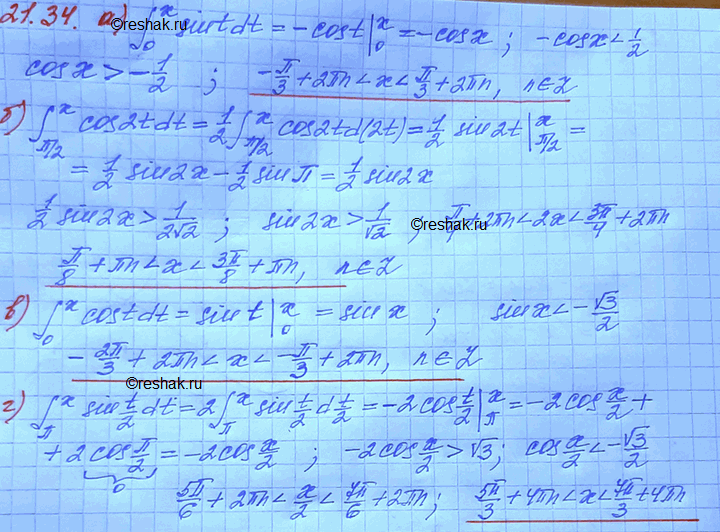 21.34. а) ∫₀ˣ sint dt = -cost |₀ˣ = -cosx ; -cosx < 1/2
cosx > -1/2 ; -π/3 + 2πn < x < π/3 + 2πn, n∈Z
©reshak.ru
б) ∫_{π/2}^x cos2t dt = 1/2 ∫_{π/2}^x cos2t d(2t) = 1/2 sin2t |_{π/2}^x =
= 1/2 sin2x - 1/2 sinπ = 1/2 sin2x
1/2 sin2x > 1/(2√2) ; sin2x > 1/√2 ; π/4 + 2πn < 2x < 3π/4 + 2πn
©reshak.ru
π/8 + πn < x < 3π/8 + πn, n∈Z
в) ∫₀ˣ cost dt = sint |₀ˣ = sinx ; sinx < -√3/2
-2π/3 + 2πn < x < -π/3 + 2πn, n∈Z
©reshak.ru
г) ∫_π^x sin t/2 dt = 2 ∫_π^x sin t/2 d t/2 = -2cos t/2 |_π^x = -2cos x/2 +
+ 2cos π/2 = -2cos x/2 ; -2cos x/2 > √3 ; cos x/2 < -√3/2
0
5π/6 + 2πn < x/2 < 7π/6 + 2πn ; 5π/3 + 4πn < x < 7π/3 + 4πn